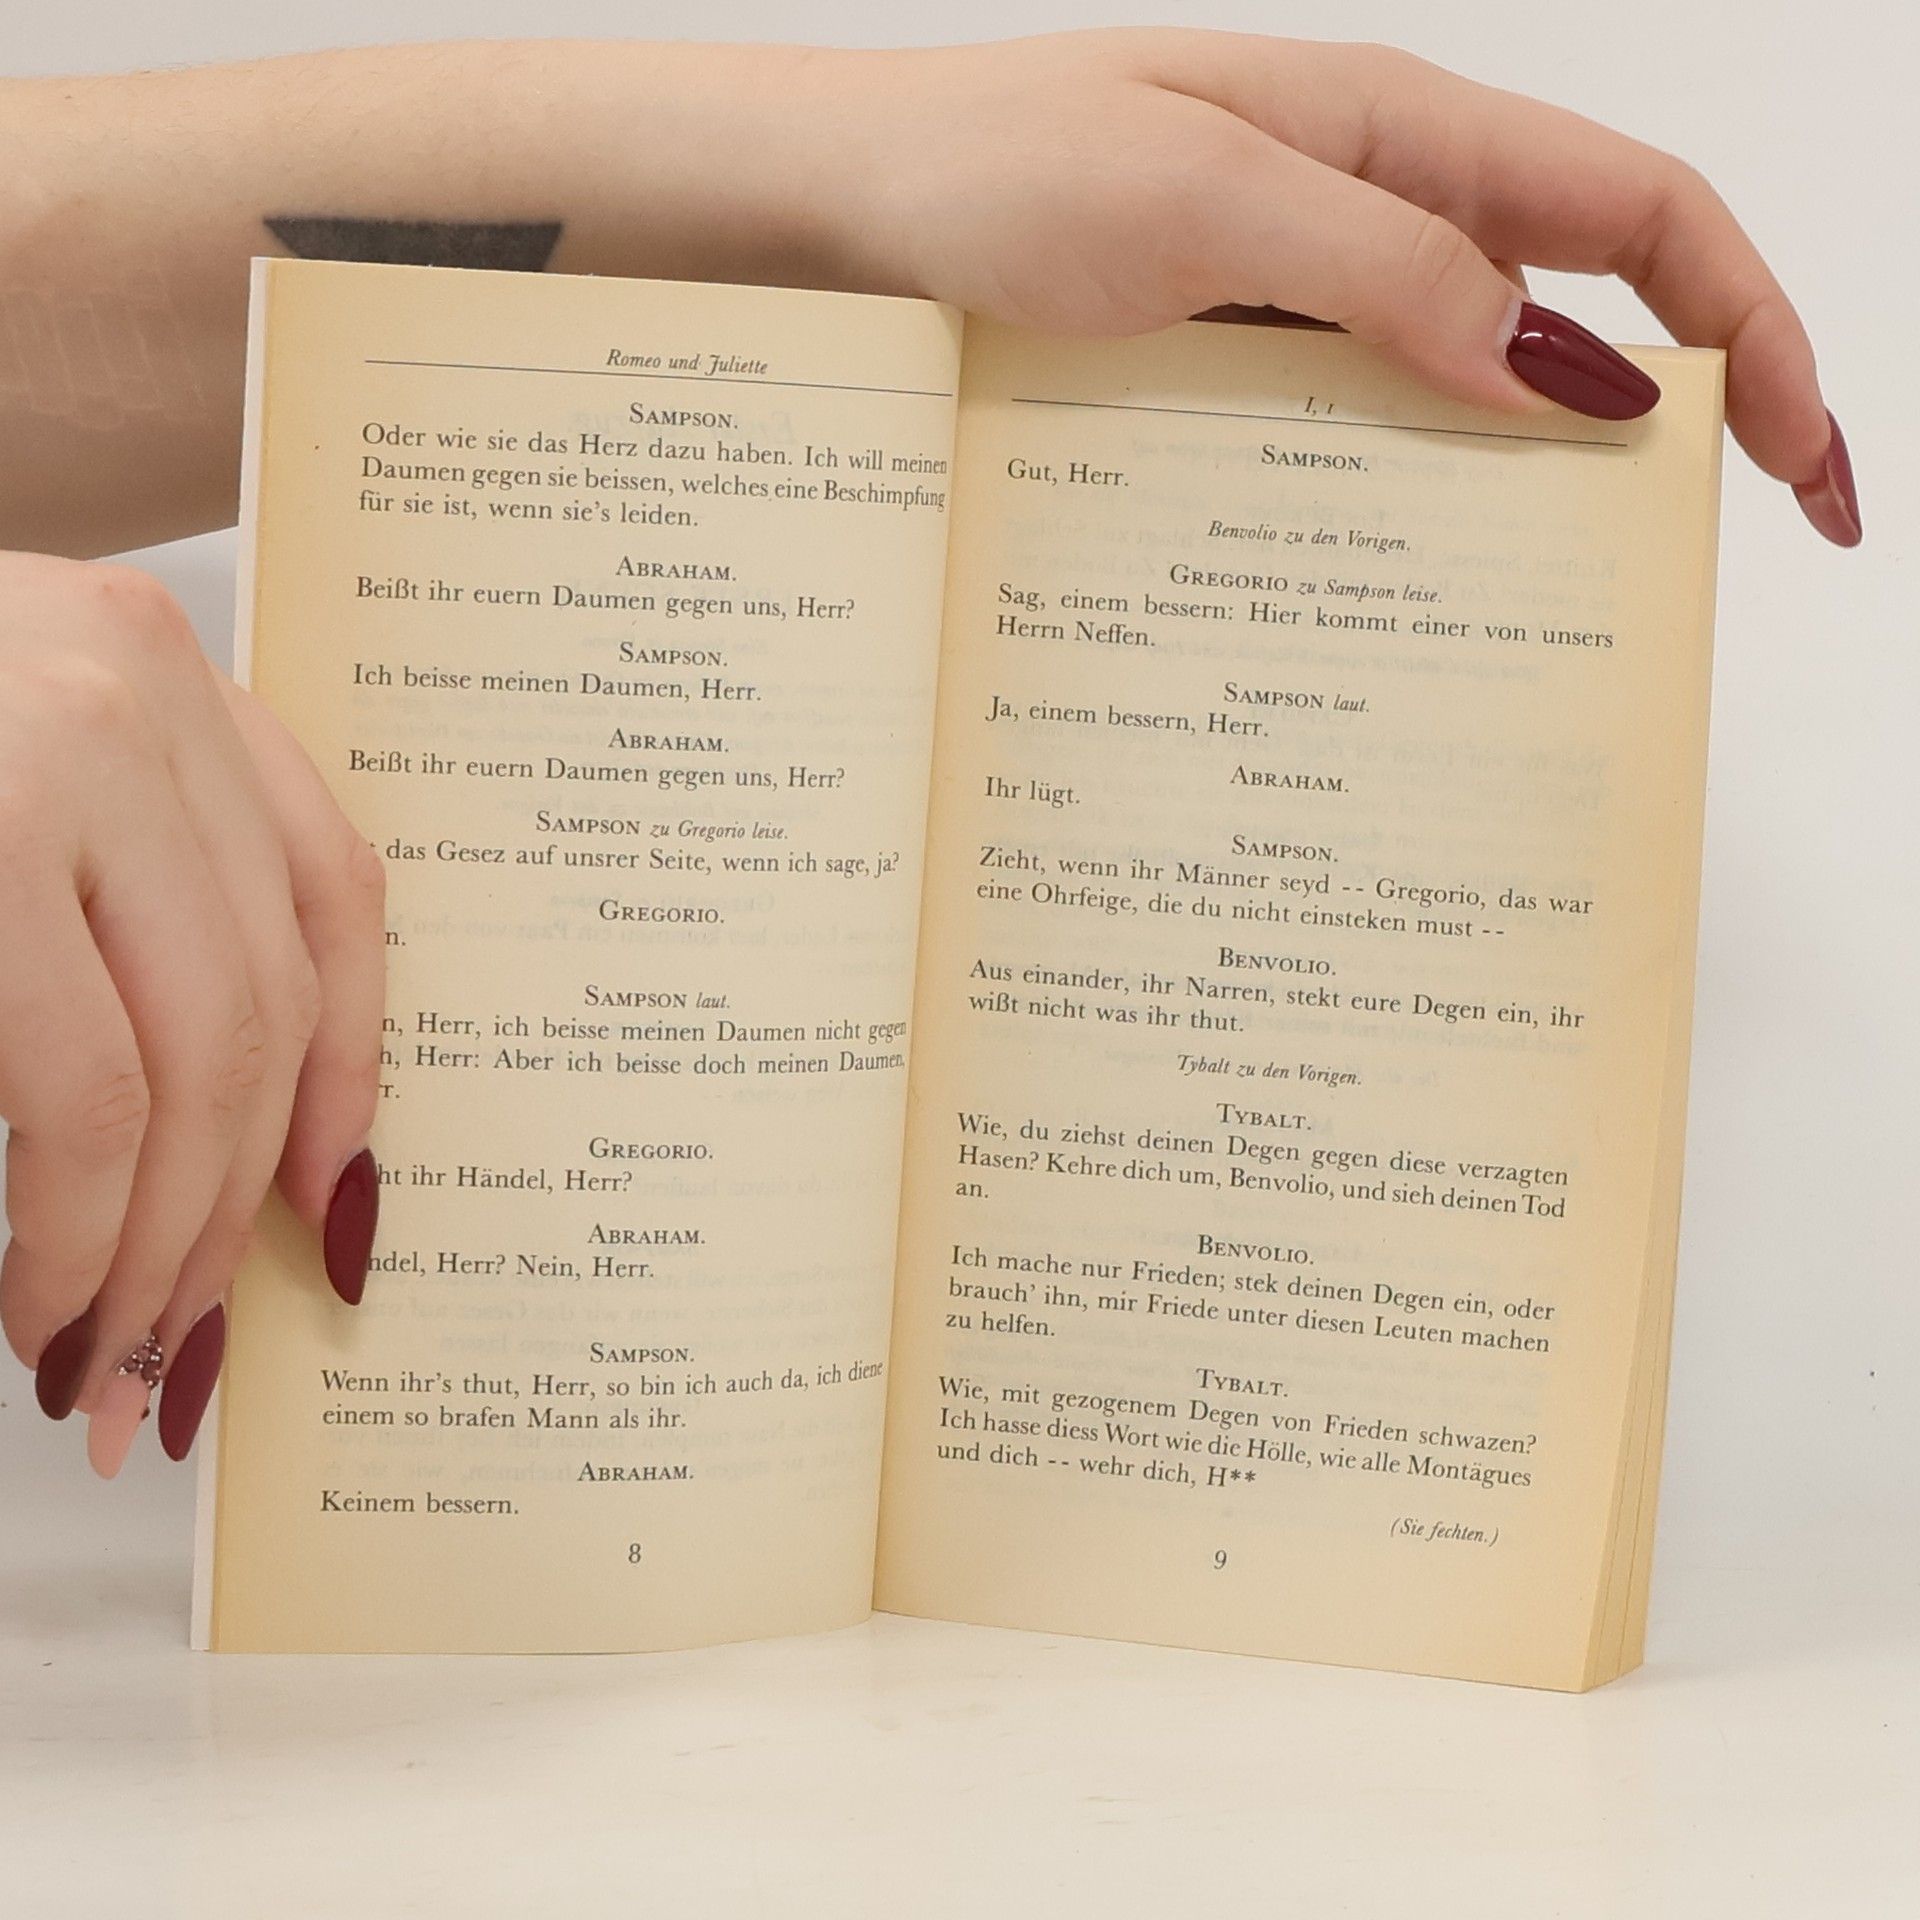 Romeo und Juliette
SAMPSON.
Oder wie sie das Herz dazu haben. Ich will meinen
Daumen gegen sie beissen, welches eine Beschimpfung
für sie ist, wenn sie's leiden.
ABRAHAM.
Beißt ihr euern Daumen gegen uns, Herr?
SAMPSON.
Ich beisse meinen Daumen, Herr.
ABRAHAM.
Beißt ihr euern Daumen gegen uns, Herr?
SAMPSON zu Gregorio leise.
das Gesez auf unsrer Seite, wenn ich sage, ja?
GREGORIO.
n.
SAMPSON laut.
n, Herr, ich beisse meinen Daumen nicht gegen
h, Herr: Aber ich beisse doch meinen Daumen,
r.
GREGORIO.
ht ihr Händel, Herr?
ABRAHAM.
ndel, Herr? Nein, Herr.
SAMPSON.
Wenn ihr's thut, Herr, so bin ich auch da, ich diene
einem so brafen Mann als ihr.
ABRAHAM.
Keinem bessern.
8
I, 1
SAMPSON.
Gut, Herr.
Benvolio zu den Vorigen.
GREGORIO zu Sampson leise.
Sag, einem bessern: Hier kommt einer von unsers
Herrn Neffen.
SAMPSON laut.
Ja, einem bessern, Herr.
ABRAHAM.
Ihr lügt.
SAMPSON.
Zieht, wenn ihr Männer seyd -- Gregorio, das war
eine Ohrfeige, die du nicht einsteken must --
BENVOLIO.
Aus einander, ihr Narren, stekt eure Degen ein, ihr
wißt nicht was ihr thut.
Tybalt zu den Vorigen.
TYBALT.
Wie, du ziehst deinen Degen gegen diese verzagten
Hasen? Kehre dich um, Benvolio, und sieh deinen Tod
an.
BENVOLIO.
Ich mache nur Frieden; stek deinen Degen ein, oder
brauch' ihn, mir Friede unter diesen Leuten machen
zu helfen.
TYBALT.
Wie, mit gezogenem Degen von Frieden schwazen?
Ich hasse diess Wort wie die Hölle, wie alle Montägues
und dich -- wehr dich, H**
(Sie fechten.)
9